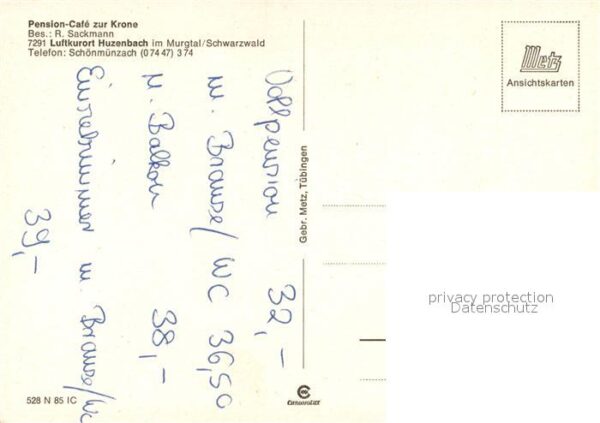 Pension-Café zur Krone
Bes.: R. Sackmann
7291 Luftkurort Huzenbach im Murgtal/Schwarzwald
Telefon: Schönmünzach (0 74 47) 3 74
Metz
Ansichtskarten
Vollpension 32,-
m. Brause/WC 36,50
u. Balkon 38,-
Einzelzimmer m. Brause/WC
39,-
Gebr. Metz, Tübingen
privacy protection
Datenschutz
528 N 85 IC